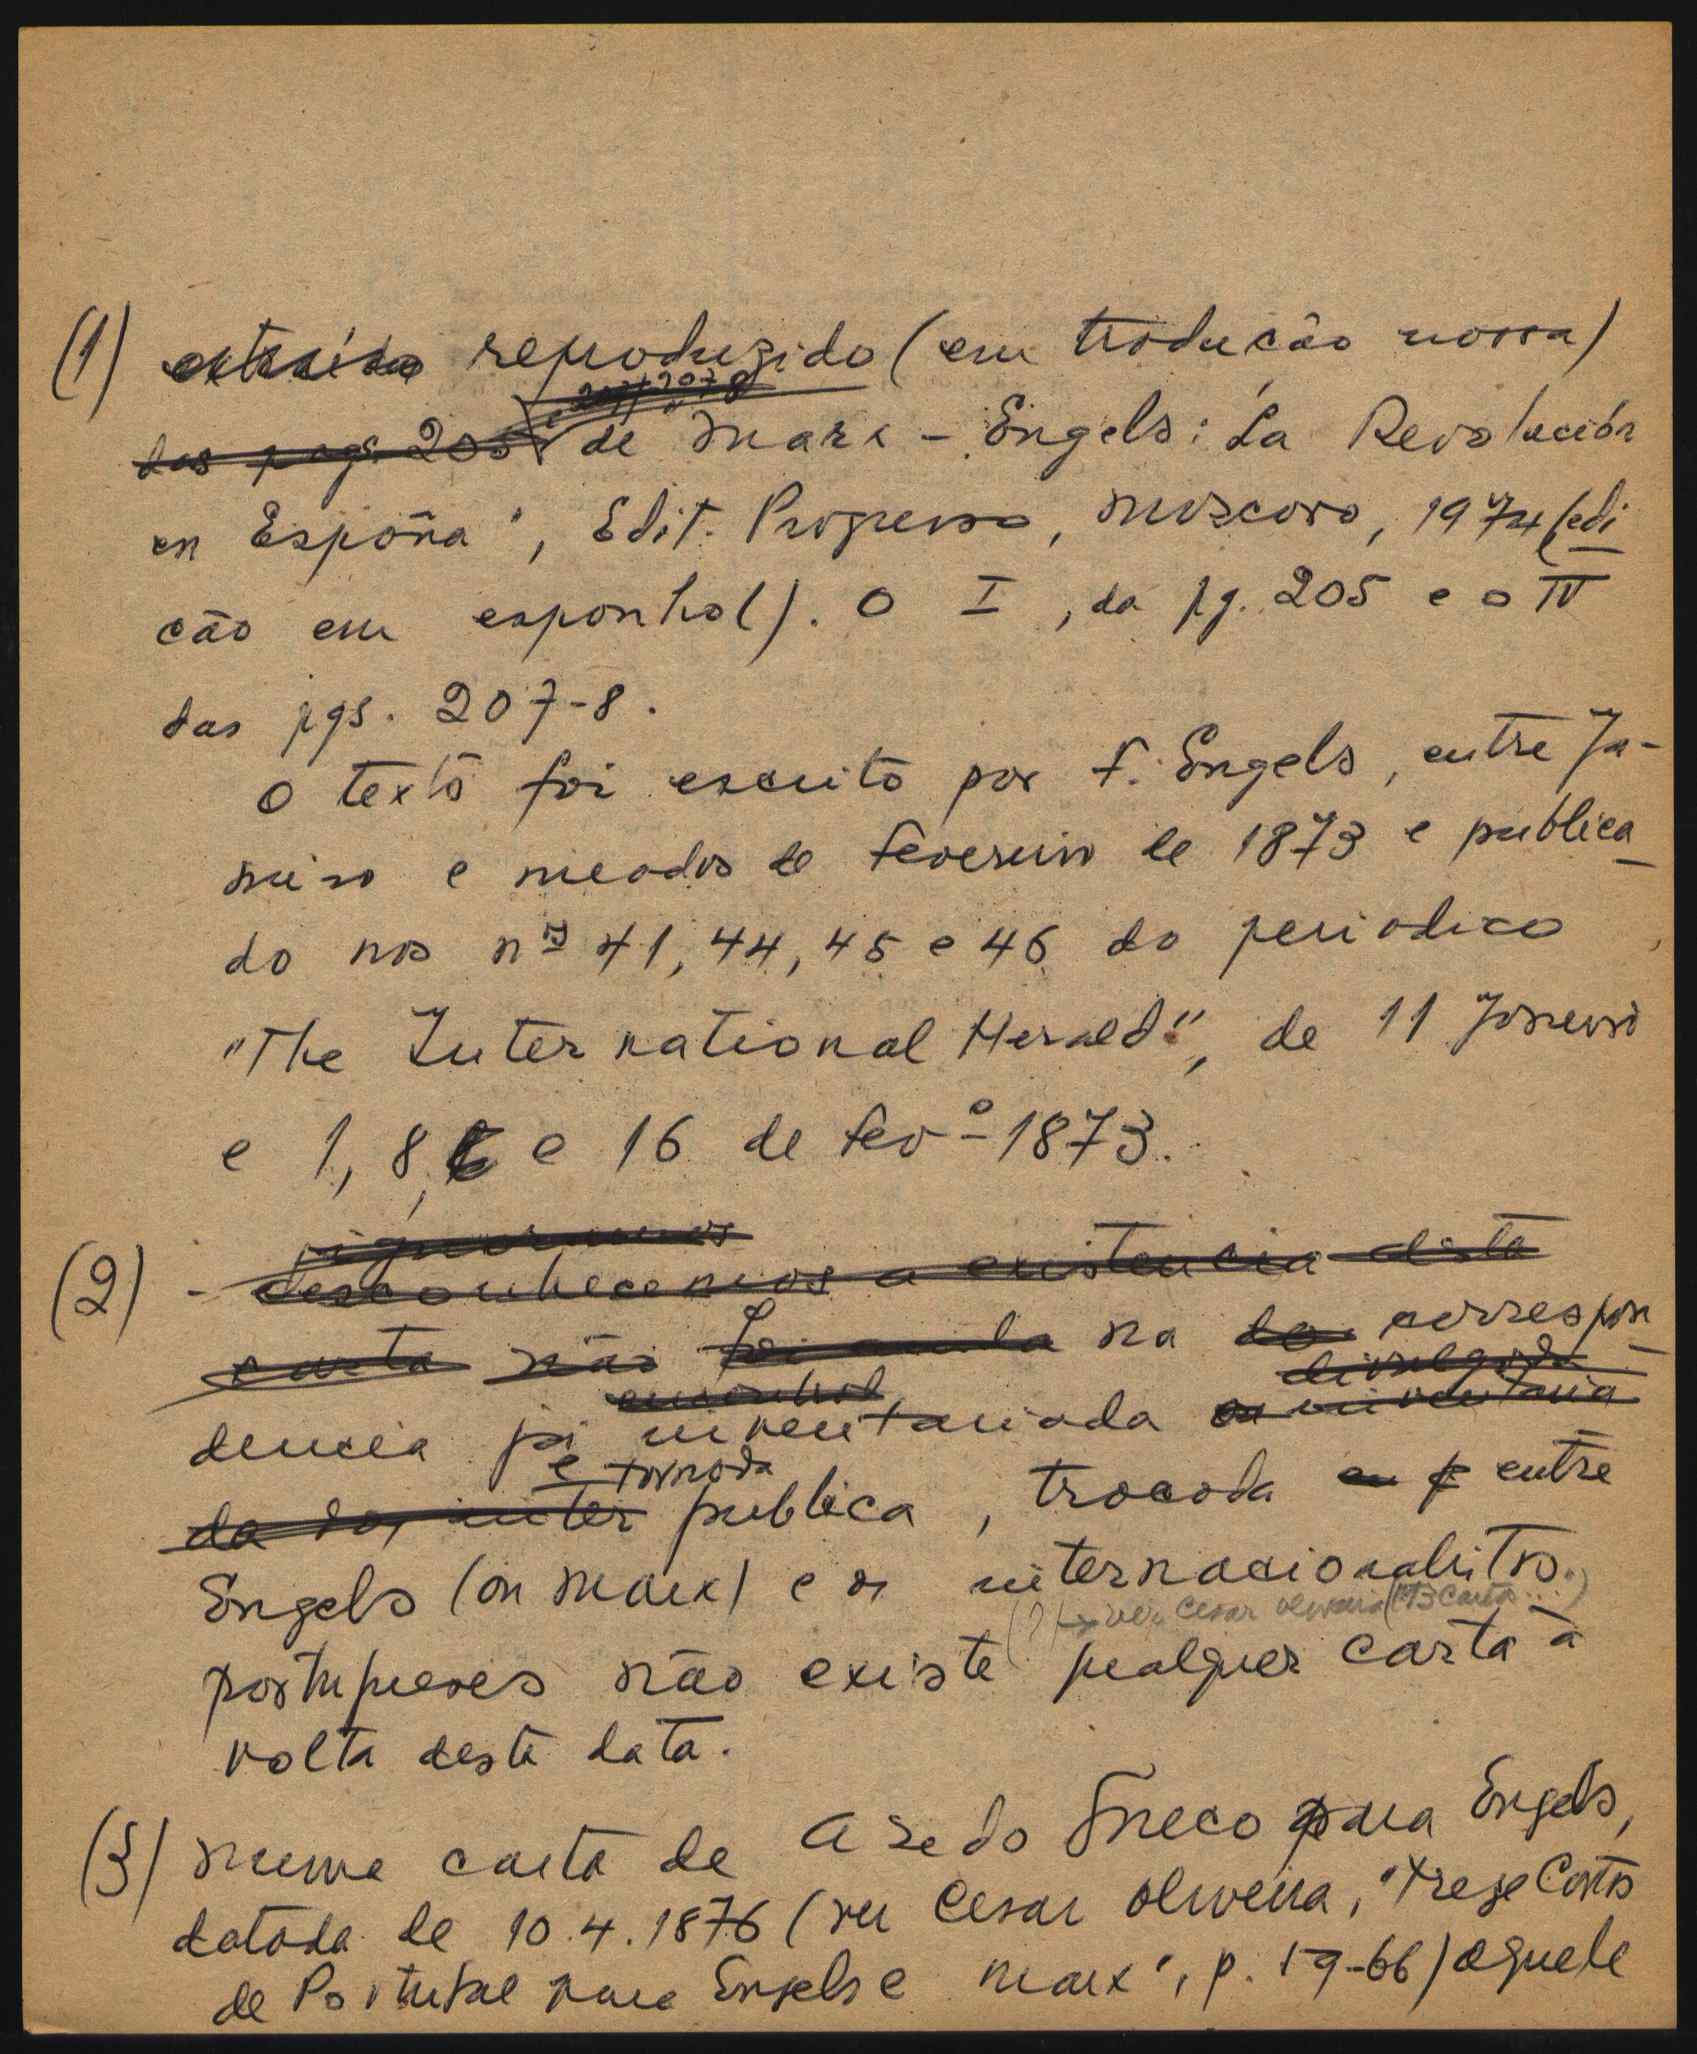 (1) extraído reproduzido (em tradução nossa)
207-8
das pags 205 de Marx - Engels: La Revolución
en España", Edit. Progresso, Moscovo, 1974 (edi
ção em espanhol). O I, da pg. 205 e o IV
das pgs. 207-8.
O texto foi escrito por F. Engels, entre Ja-
neiro e meados de Fevereiro de 1873 e publica
do nos nos 41, 44, 45 e 46 do periodico
"The International Herald", de 11 Janeiro
e 1, 8, e 16 de Fevº 1873.
ignoramos
(2) - desconhecemos a existencia desta
carta não foi ainda na da correspon
divulgada
dencia já inventariada ou inventaria
e tornada
da da inter publica, trocada entre
Engels (ou Marx) e os internacionalistas
(?) → ver Cesar Oliveira ("13 Cartas...)
portugueses não existe qualquer carta à
volta desta data.
(3) Numa carta de Azedo Gneco para Engels,
datada de 10.4.1876 (ver Cesar Oliveira, "Treze Cartas
de Portugal para Engels e Marx", p. 59-66) aquele